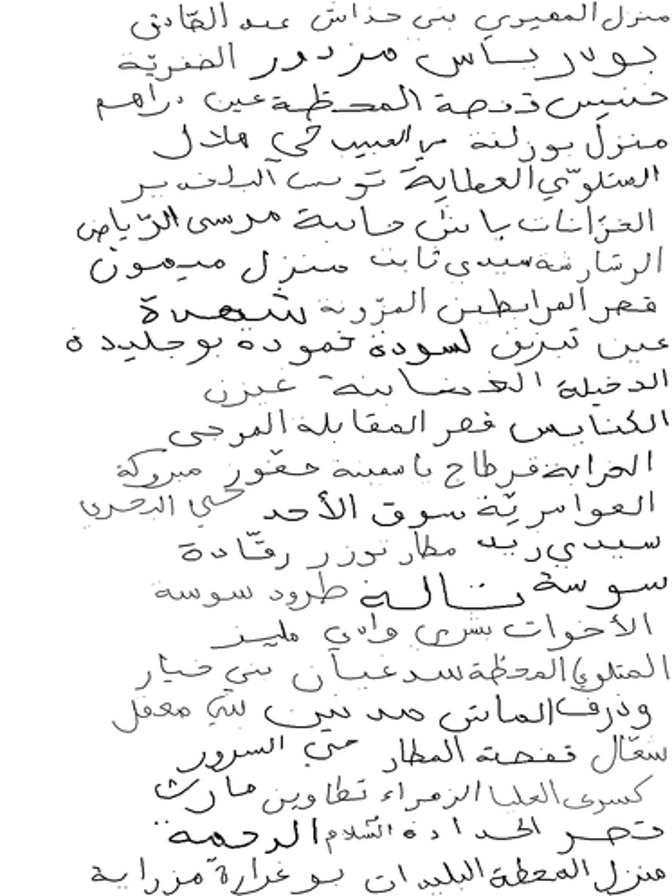 منزل المعيوي بني حداش عبد الصّادق
بولدرباس مزدور الضفريّة
خنيس قفصة المحطّة عين دراهم
منزل بوزلفة حي هلال
المتلوّي العطاية تونس
الخزانات باش حانبة مرسى الرّياض
الرشارشة سيدي ثابت منزل ميمون
قصر المرابطين المزّونة شيهدة
عين تبرنق لسودة حمودة بوجليدة
الدخيلة الغضابنة غيزن
الكنايس قصر المقابلة المرجى
الخرابة قرطاج ياسمينة حقّوز مبروكة
العوامريّة سوق الأحد حي البحري
سيدي زيد مطار توزر رقّادة
سوسة تالة طرود سوسة
الأخوات بشري وادي مليز
المتلوي المحطّة سدغيان بني خيار
وذرف الماتش مدنين بني معقل
شعّال قفصة المطار حي السرور
كسرى العليا الزهراء تطاوين مارث
قصر الحدادة السّلام الرحمة
منزل المحطة البليدات بوغرارة مزراية